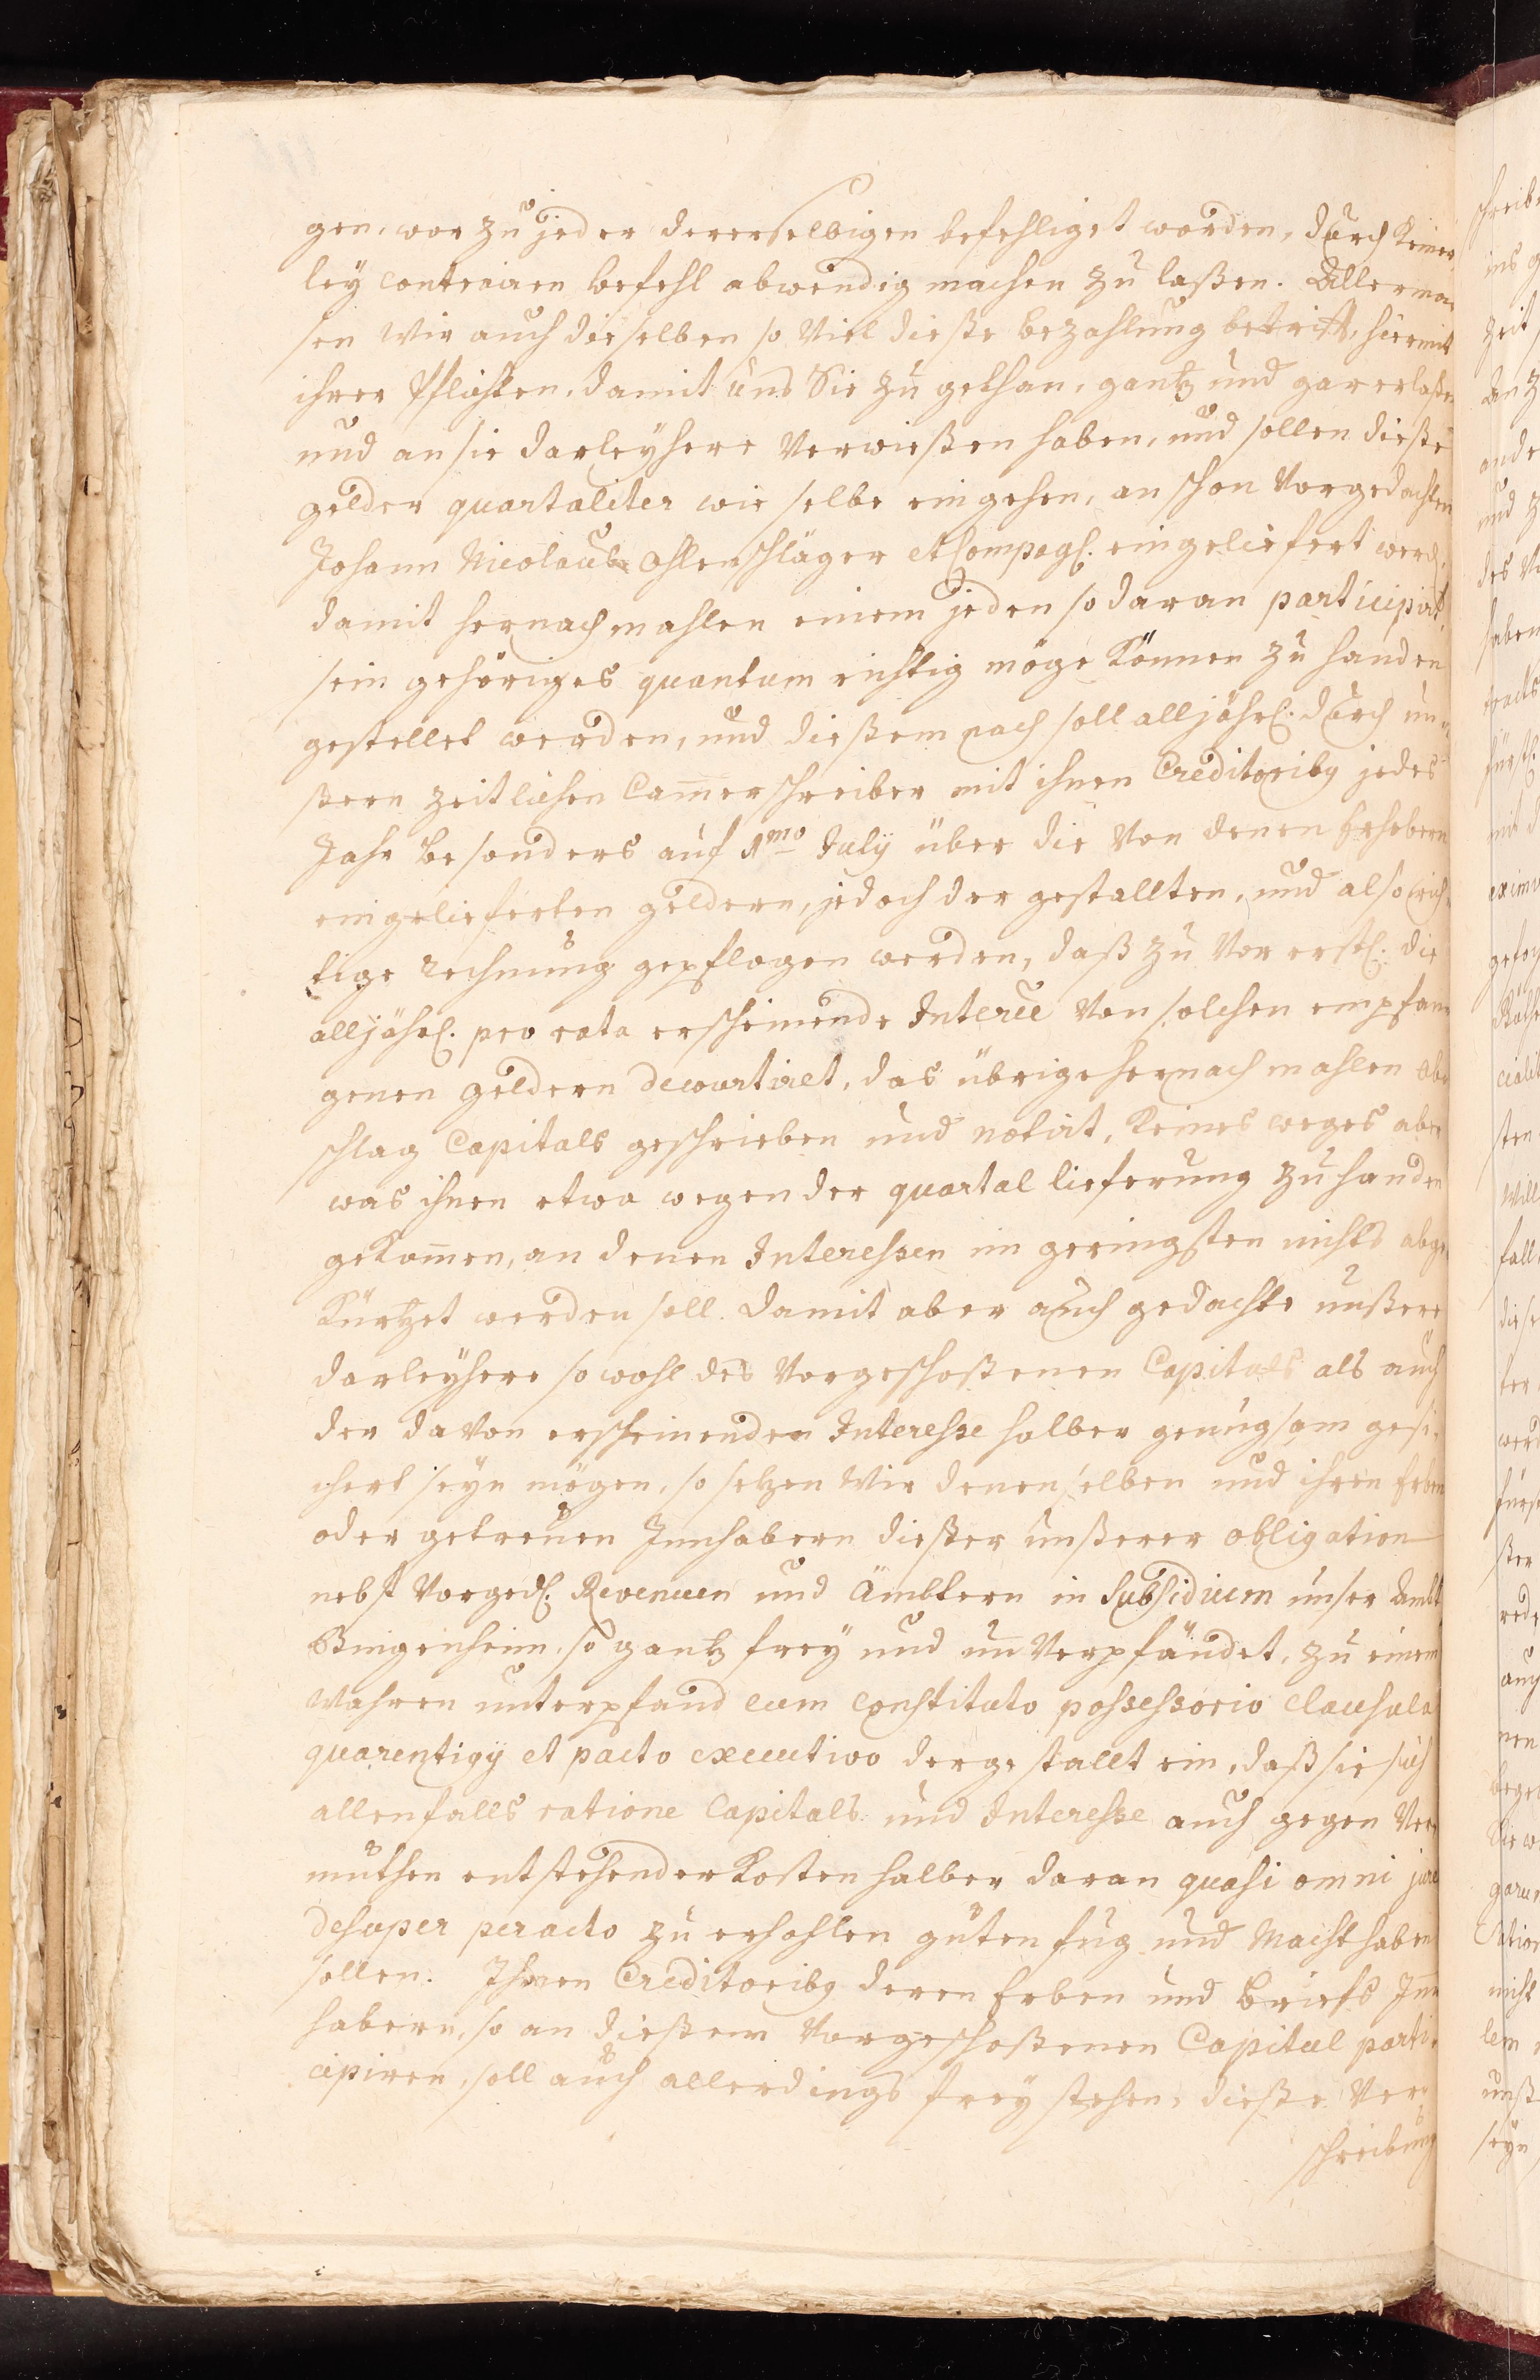 gen, wor zu jeder dererselbigen befehliget worden, durch keiner
ley contrairen befehl abwendig machen zu laßen. Allerma
sen Wir auch dieselben so Viel dieße bezahlung betrifft, hiermit
ihrer Pflichten, damit uns Sie zu gethan, gantz und gar erlaßen
und an sie darleyhere Verwießen haben, und sollen dieße
gelder quartaliter wie selbe eingehen, an schon Vorgedachten
Johann Nicolaus Ohlenschläger et Compagl. eingeliefert werd.
damit hernachmahlen einem jeden so daran participirt,
sein gehöriges quantum richtig möge können zu handen
gestellet werden, und dießem nach soll alljährl. durch un-
ßern zeitlichen Cam̄erschreiber mit ihnen Creditoribg jedes
Jahr besonders auf 1mo July über die Von denen Erhebern
eingelieferten geldern, jedoch der gestallten, und also rich-
tige rechnung gepflogen werden, daß zu Vor erstl. die
alljährl. pro rata erscheinende Interée Von solchen empfan
genen geldern decourtiret, das übrige hernachmahlen ab
schlag Capitals geschrieben und notirt, keines weges aber
was ihnen etwa wegen der quartal lieferung zu handen
gekom̄en, an denen Interessen im geringsten nichts abge
kürtzet werden soll. Damit aber auch gedachte unßere
darleyhere so wohl des Vorgeschoßenen Capitals als auch
der daVon erscheinenden Interesse halber genugsam gesi-
chert seyn mögen, so setzen Wir denenselben und ihren Erben
oder getreuen Innhabern dießer unßerer obligation
nebst Vorgedl. Revenuen und Ämbtern in Subsidium unser Ambt
Bingenheim, so gantz frey und unVerpfändet, zu einem
Wahren unterpfand cum constituto possessorio clausula
quarentigij et pacto executivo dergestallt ein, daß sie sich
allenfalls ratione Capitals und Interesse auch gegen Ver
muthen entstehender Kosten halber daran quasi omni jure
desuper peracto zu erhohlen guten fug und Macht haben
sollen. Ihnen Creditoribg deren Erben und Briefs Inn
habern, so an dießem Vorgeschoßenen Capital parti-
cipiren, soll auch allerdings frey stehen, dieße Ver-
schreibung